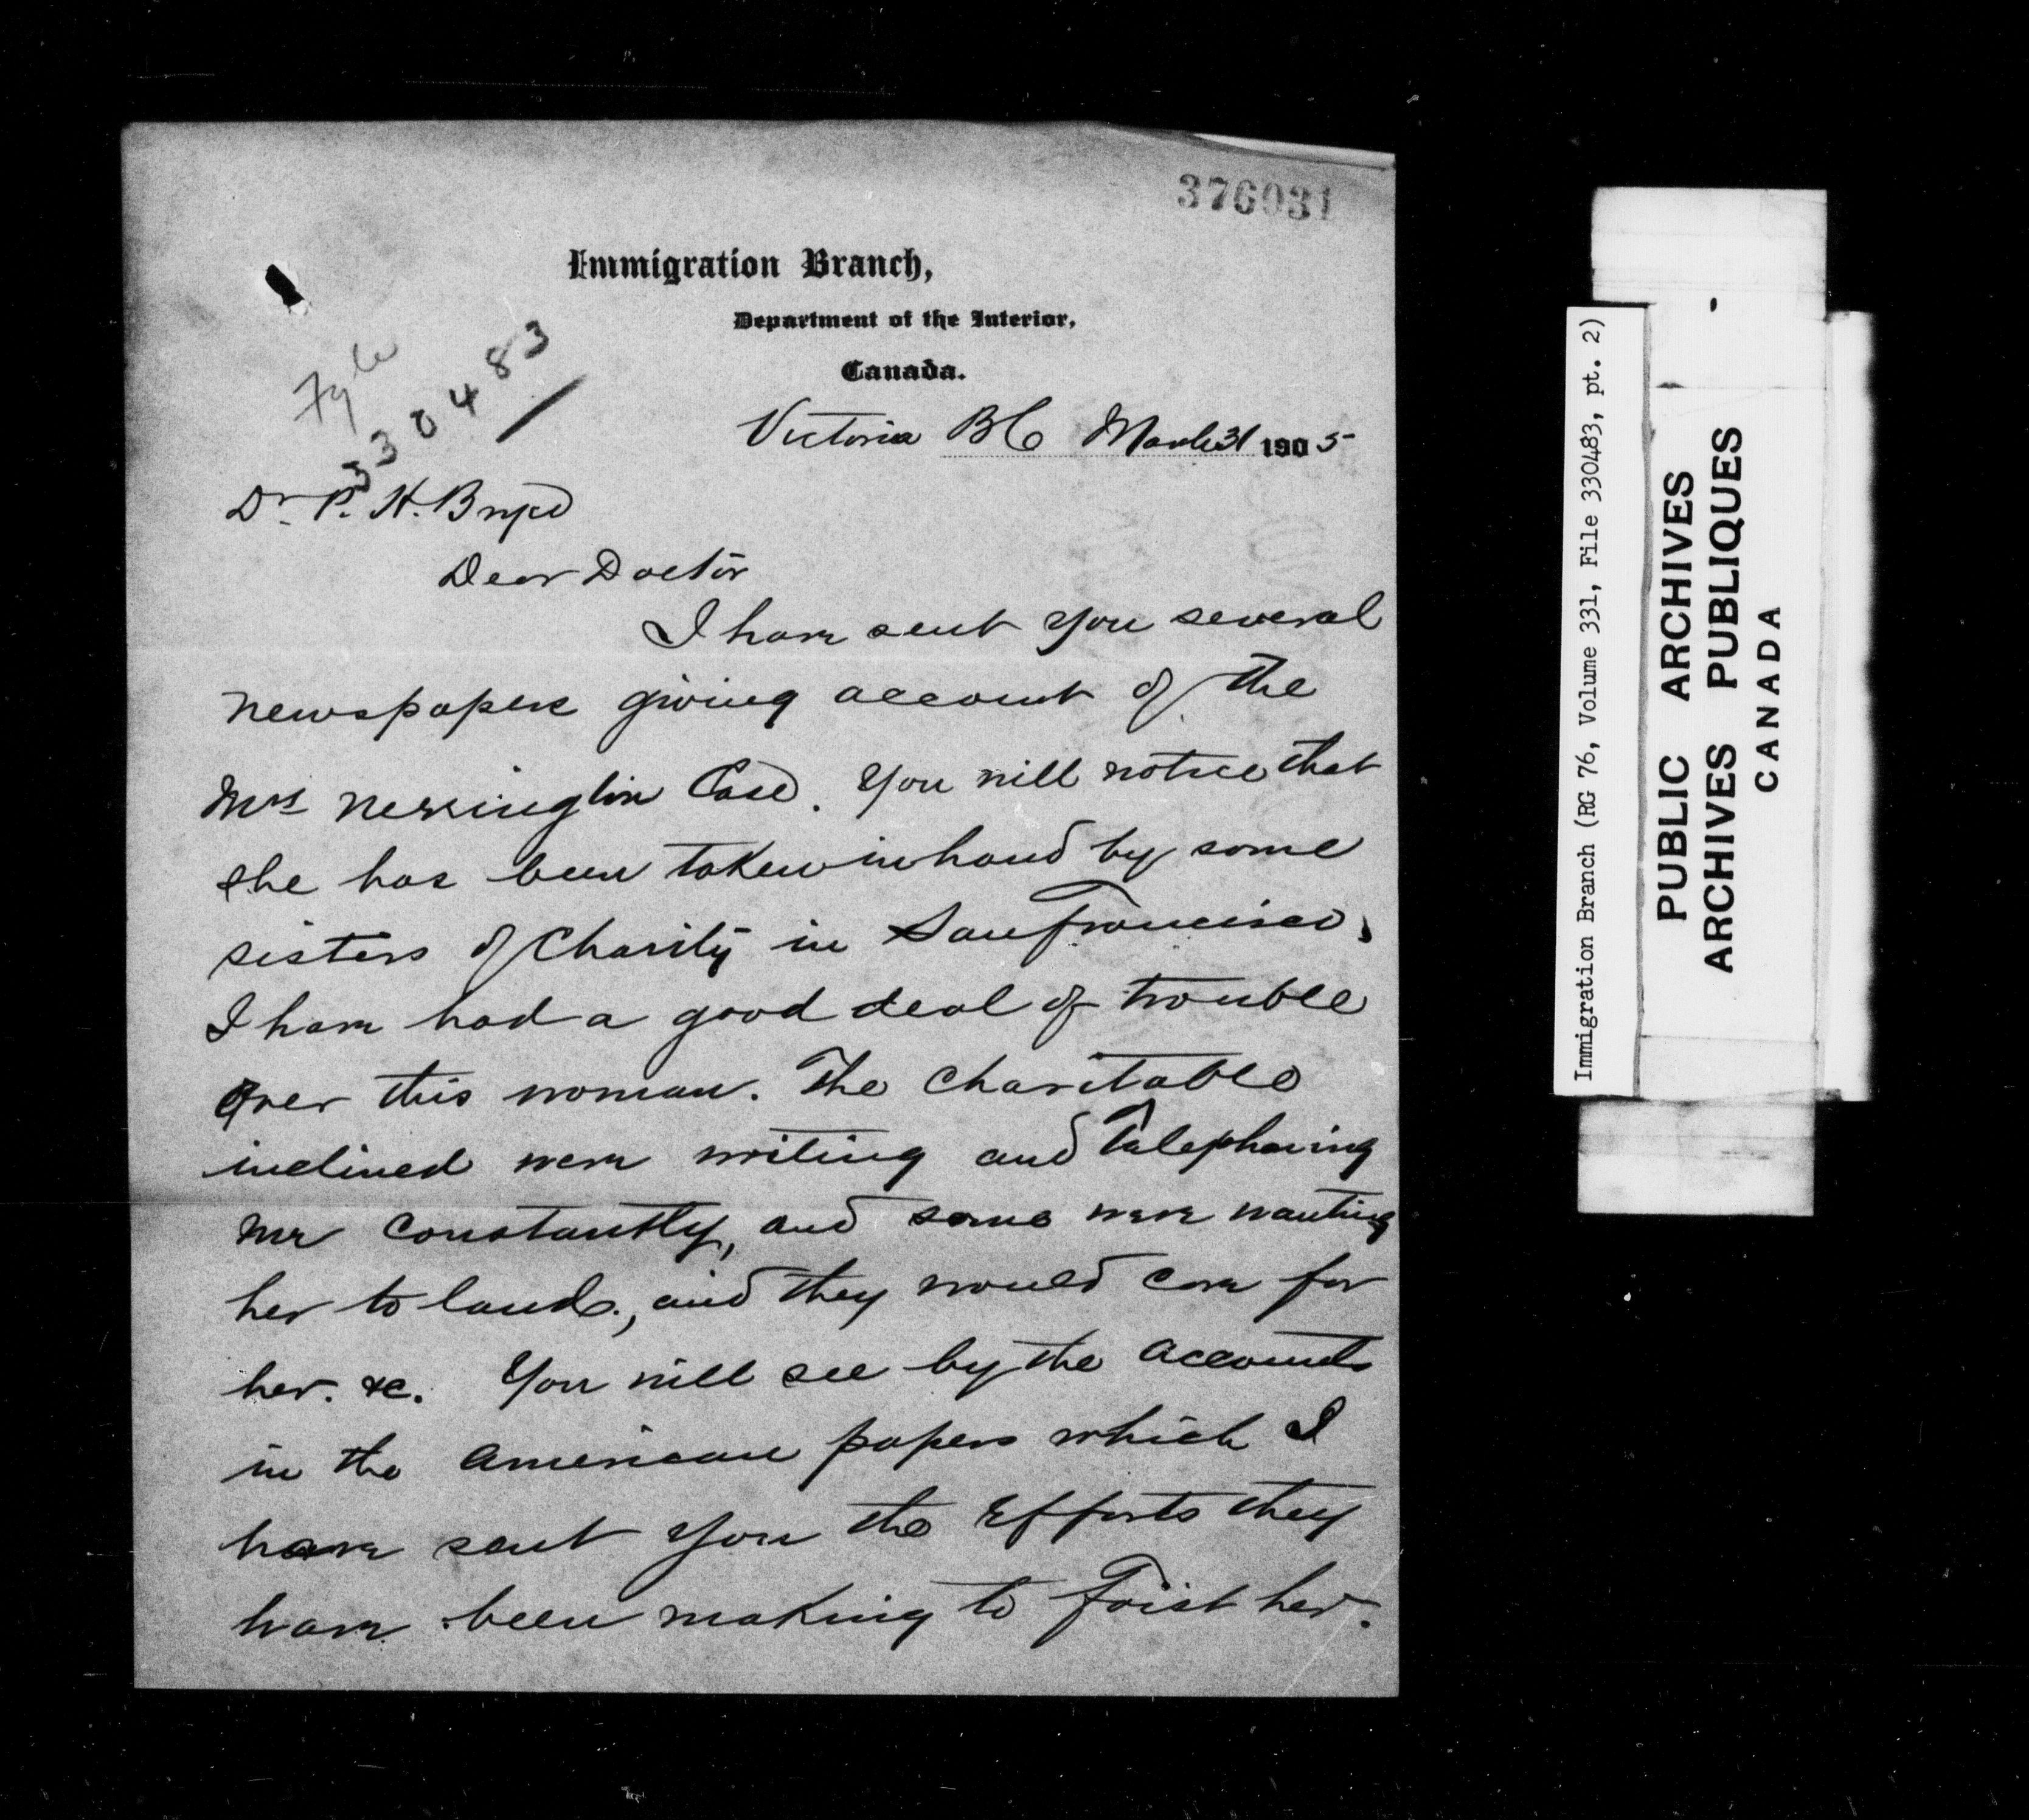 376031
Immigration Branch,
Department of the Interior,
Canada.
Fyle
330483
Victoria BC March 31 1905
Dr. P. H. Bryce
Dear Doctor
I have sent you several
newspapers giving account of the
Mrs Case. You will notice that
she has been taken in hand by some
sisters of Charity in San Francisco.
I have had a good deal of trouble
over this woman. The charitable
inclined were writing and Telephoning
me constantly, and some were wanting
her to land, and they would care for
her. &c. You will see by the accounts
in the American papers which I
have sent you the efforts they
have been making to foist her.
Immigration Branch (RG 76, Volume 331, File 330483, pt. 2)
PUBLIC ARCHIVES
ARCHIVES PUBLIQUES
CANADA